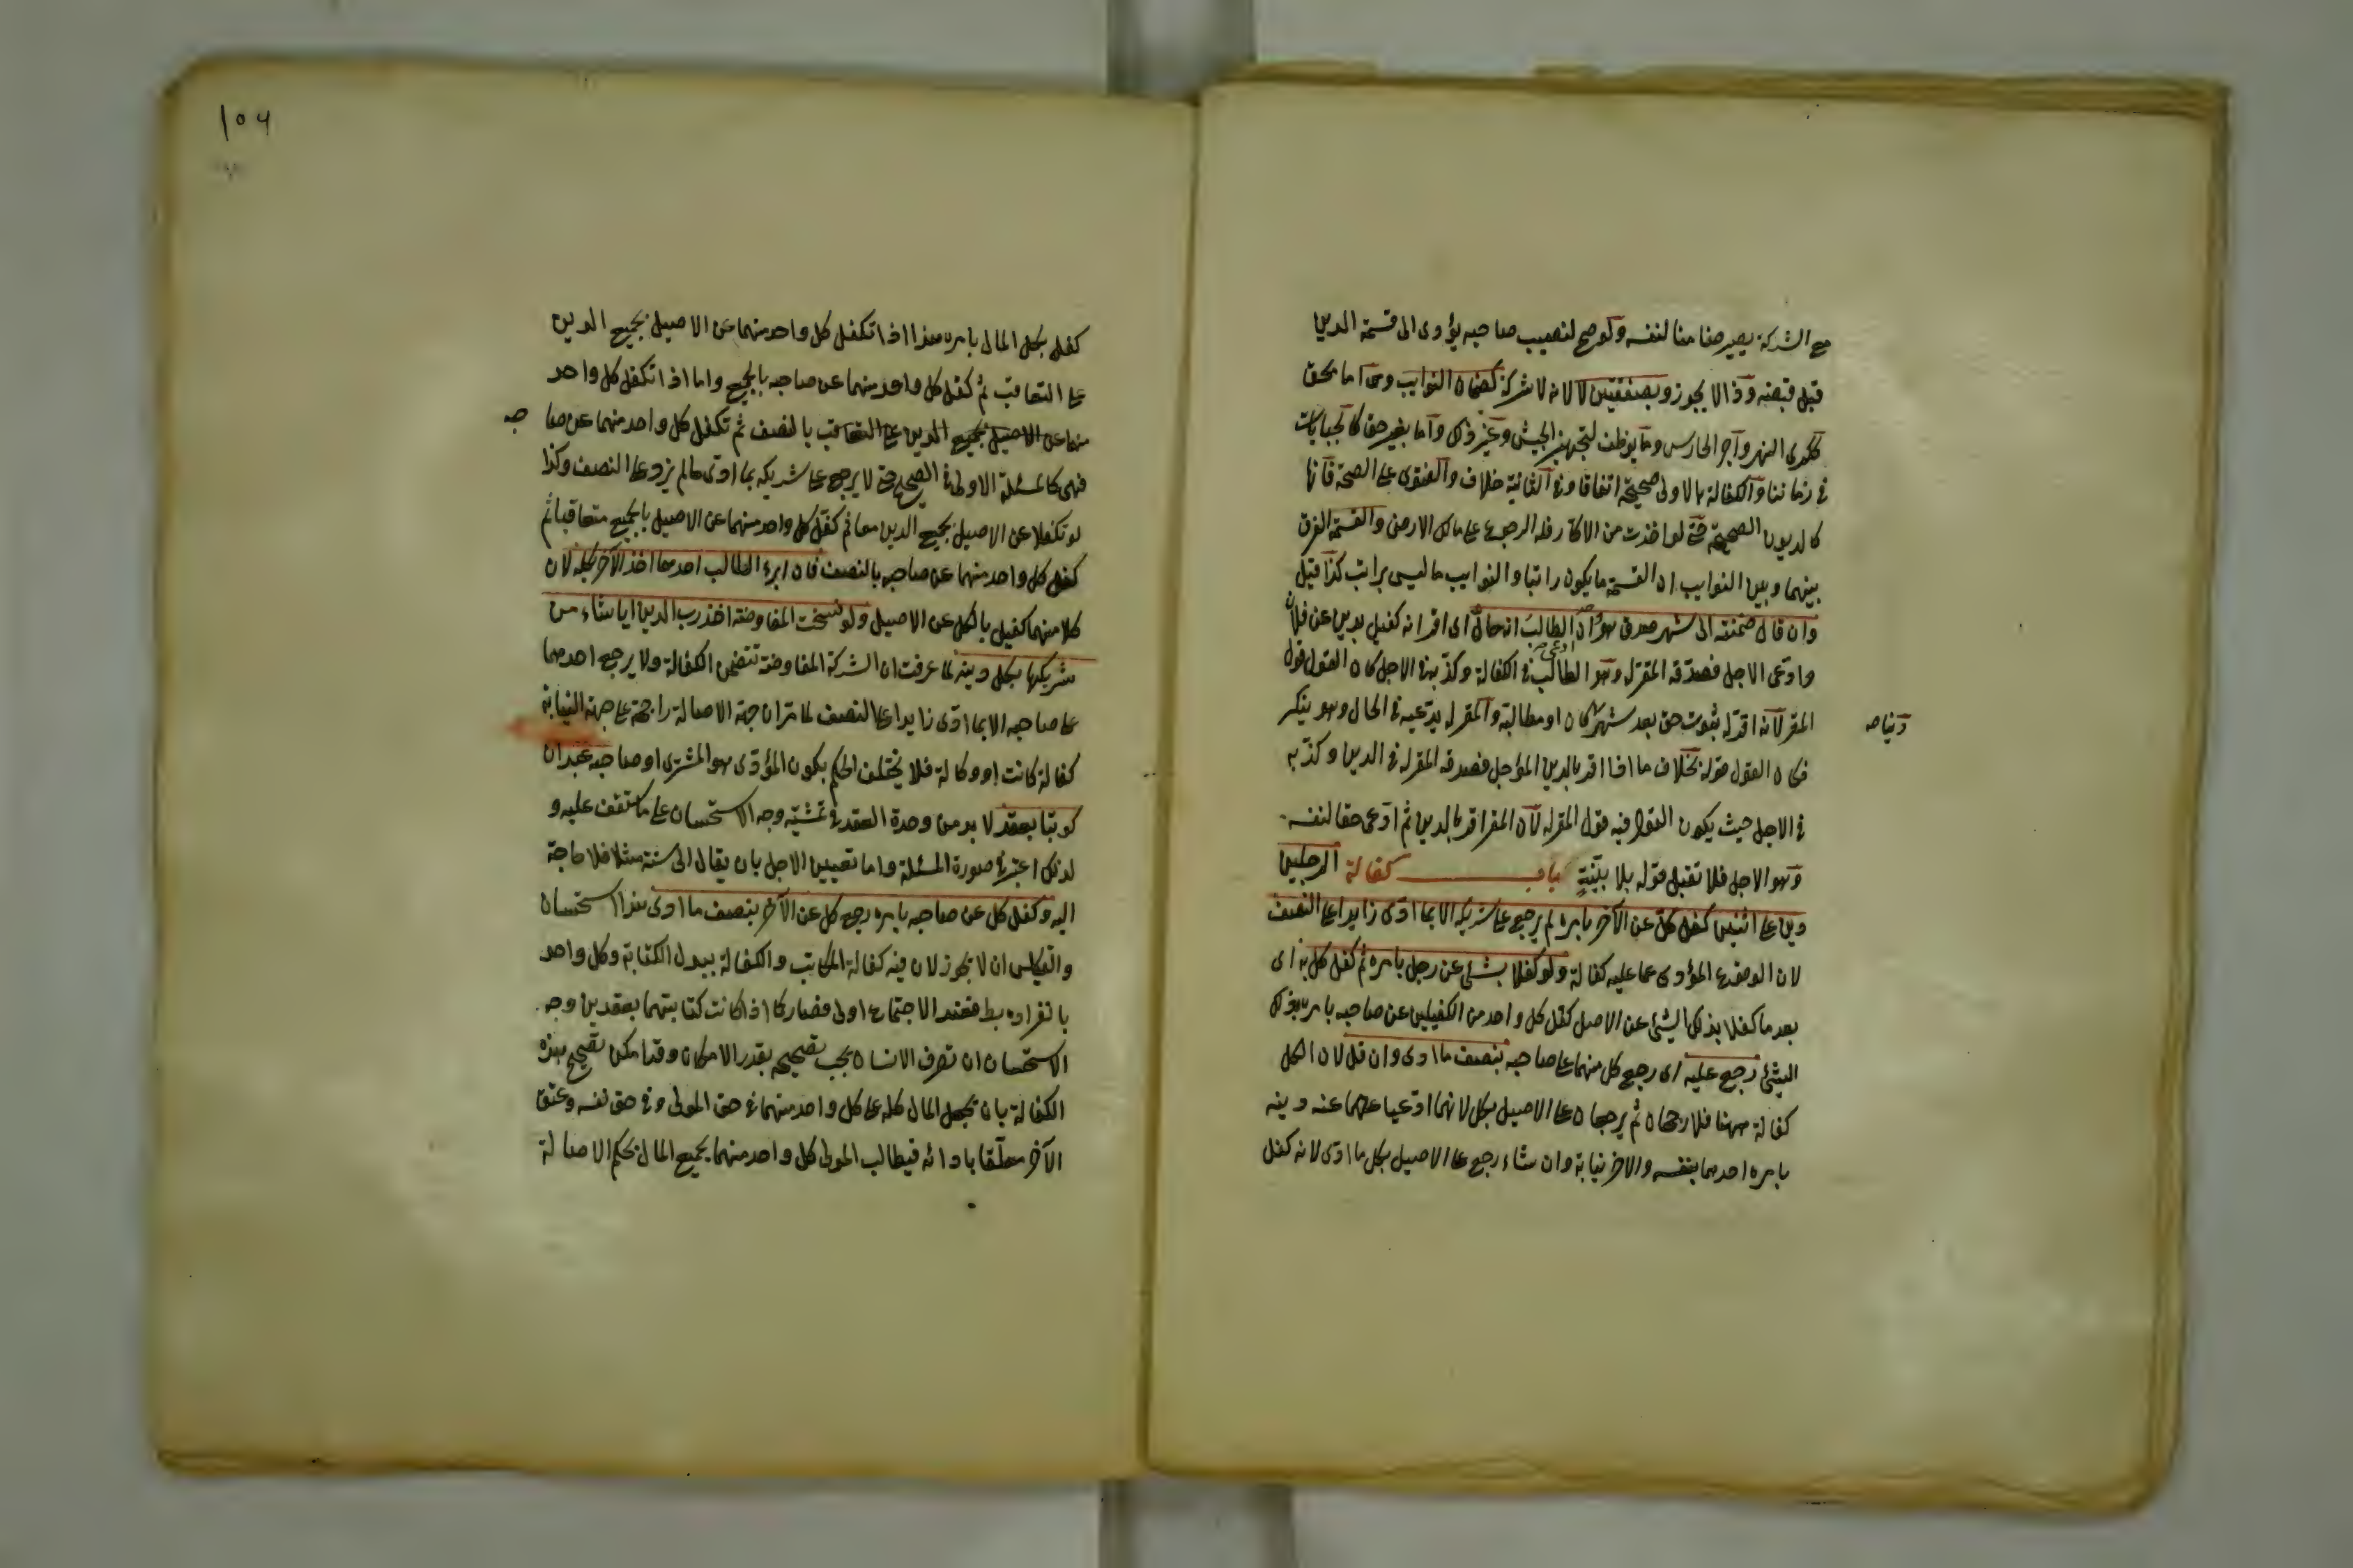 مع الشركة يصير ضامنا لنفسه ولو صح لنصيب صاحبه يؤدى الى قسمة الدين
قبل قبضه وذا لا يجوز وبصفقتين لا لانه لا شركة كضمان النوايب وهى اما بحق
ككرى النهر وآجر الحارس وما يوظف لتجهيز الجيش وغير ذلك وآما بغير حق كالجبايات
فى زماننا والكفالة بالاولى صحيحة اتفاقا وفى الثانية خلاف والفتوى على الصحة فانها
كالديون الصحيحة حتى لو اخذت من الاكار فله الرجوع على مالك الارض والقسمة الفرق
بينهما وبين النوايب ان القسمة ما يكون راتبا والنوايب ما ليس براتب كذا قيل
وان قال ضمنته الى شهر صدق هو وان ادعى الطالب انه حال اى اقر انه كفيل بدين عن فلان
وادعى الاجل فصدقه المقر له وهو الطالب فى الكفالة وكذبه فى الاجل كان القول قول
المقر لآنه اقر له بثبوت حق بعد شهر كان او مطالبة والمقر له يدعيه فى الحال وهو ينكر
دينا صه
فكان القول قوله بخلاف ما اذا اقر بالدين المؤجل فصدقه المقر له فى الدين وكذبه
فى الاجل حيث يكون القول فيه قول المقر له لآن المقر اقر بالدين ثم ادعى حقا لنفسه
وهو الاجل فلا تقبل قوله بلا بينة باب كفالة الرجلين
دين على اثنين كفل كل عن الآخر بامره لم يرجع على شريكه الا بما ادى زايدا على النصف
لان الوقوع المؤدى عما عليه كفالة ولو كفلا بشئ عن رجل بامره ثم كفل كل به اى
بعد ما كفلا بذلك الشئ عن الاصل كفل كل واحد من الكفيلين عن صاحبه بامره بذلك
الشئ رجع عليه اى رجع كل منهما على صاحبه بنصف ما ادى وان قل لان الكل
كفالة ههنا فلا رجحان ثم يرجعان على الاصيل بكل لانهما ادعيا عليهما عنه دينه
بامره احدهما بنفسه والاخر نيابة وان شاء رجع على الاصيل بكل ما ادى لانه كفل
١٥٦
كفل بكل المال بامره هذا اذا تكفل كل واحد منهما عن الاصيل بجميع الدين
على التعاقب ثم كفل كل واحد منهما عن صاحبه بالجميع واما اذا تكفل كل واحد
منهما عن الاصيل بجميع الدين على التعاقب بالنصف ثم تكفل كل واحد منهما عن صا
حبه
فهى كالمسئلة الاولى فى الصحيح حتى لا يرجع على شريكه بما ادى ما لم يزد على النصف وكذا
لو تكفلا عن الاصيل بجميع الدين معا ثم كفل كل واحد منهما عن الاصيل بالجميع متعاقبا ثم
كفل كل واحد منهما عن صاحبه بالنصف فان ابرء الطالب احدهما اخذ الآخر بكله لان
كلا منهما كفيل بالكل عن الاصيل ولو فسخت المفاوضة اخذ رب الدين ايا شاء من
شريكها بكل دينه لما عرفت ان الشركة المفاوضة تتضمن الكفالة ولا يرجع احدهما
على صاحبه الا بما ادى زايدا على النصف لما مر ان جهة الاصالة راجحة على جهة النيابة
كفالة كانت او وكالة فلا يختلف الحكم بكون المؤدى هو المشترى او صاحبه عبدان
كوتبا بعقد لا بد من وحدة العقد فى تمشية وجه الاستحسان على ما ستقف عليه و
لذلك اعتبر فى صورة المسئلة واما تعيين الاجل بان يقال الى سنة مثلا فلا حاجة
اليه وكفل كل عن صاحبه بامره رجع كل عن الآخر بنصف ما ادى هذا استحسان
والقياس ان لا يجوز لان فيه كفالة المكاتب والكفالة ببدل الكتابة وكل واحد
بانفراده بط فعند الاجتماع اولى فصار كما اذا كانت كتابتهما بعقدين وجه
الاستحسان ان تصرف الانسان يجب تصحيحه بقدر الامكان وقد امكن تصحيح هذه
الكفالة بان يجعل المال كله على كل واحد منهما فى حق المولى وفى حق نفسه وعتق
الآخر معلقا بادائه فيطالب المولى كل واحد منهما بجميع المال بحكم الاصالة